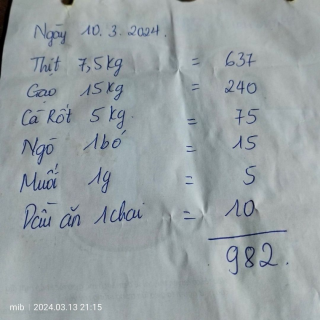 Ngày 10.3.2024.
Thịt 7,5kg = 637
Gạo 15kg = 240
Cà Rốt 5kg = 75
Ngò 1bó = 15
Muối 1g = 5
Dầu ăn 1chai = 10
982.
mib : 2024.03.13 21:15